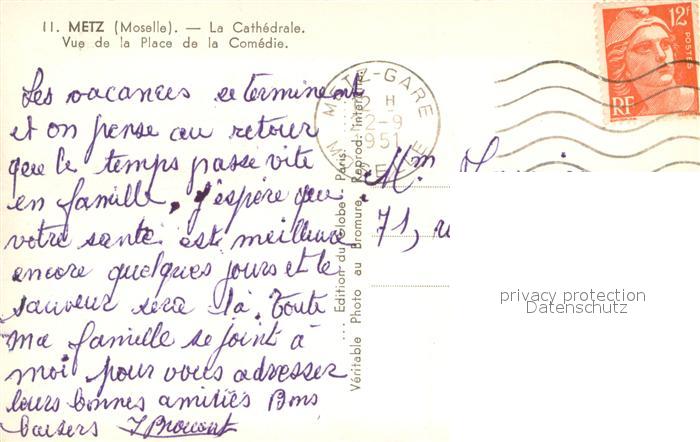 11. METZ (Moselle). — La Cathédrale.
Vue de la Place de la Comédie.
Les vacances se terminent
et on pense au retour
que le temps passe vite
en famille, j'espère que
votre santé est meilleure
encore quelques jours et le
sauveur sera là. Toute
ma famille se joint à
moi pour vous adresser
leurs bonnes amitiés Bons
baisers
.... Edition du Globe - Paris
Véritable Photo au Bromure. Reprod. interd.
METZ-GARE
12 H
12-9
1951
MOSELLE
12F
POSTES
RF
Mme
71, r
privacy protection
Datenschutz